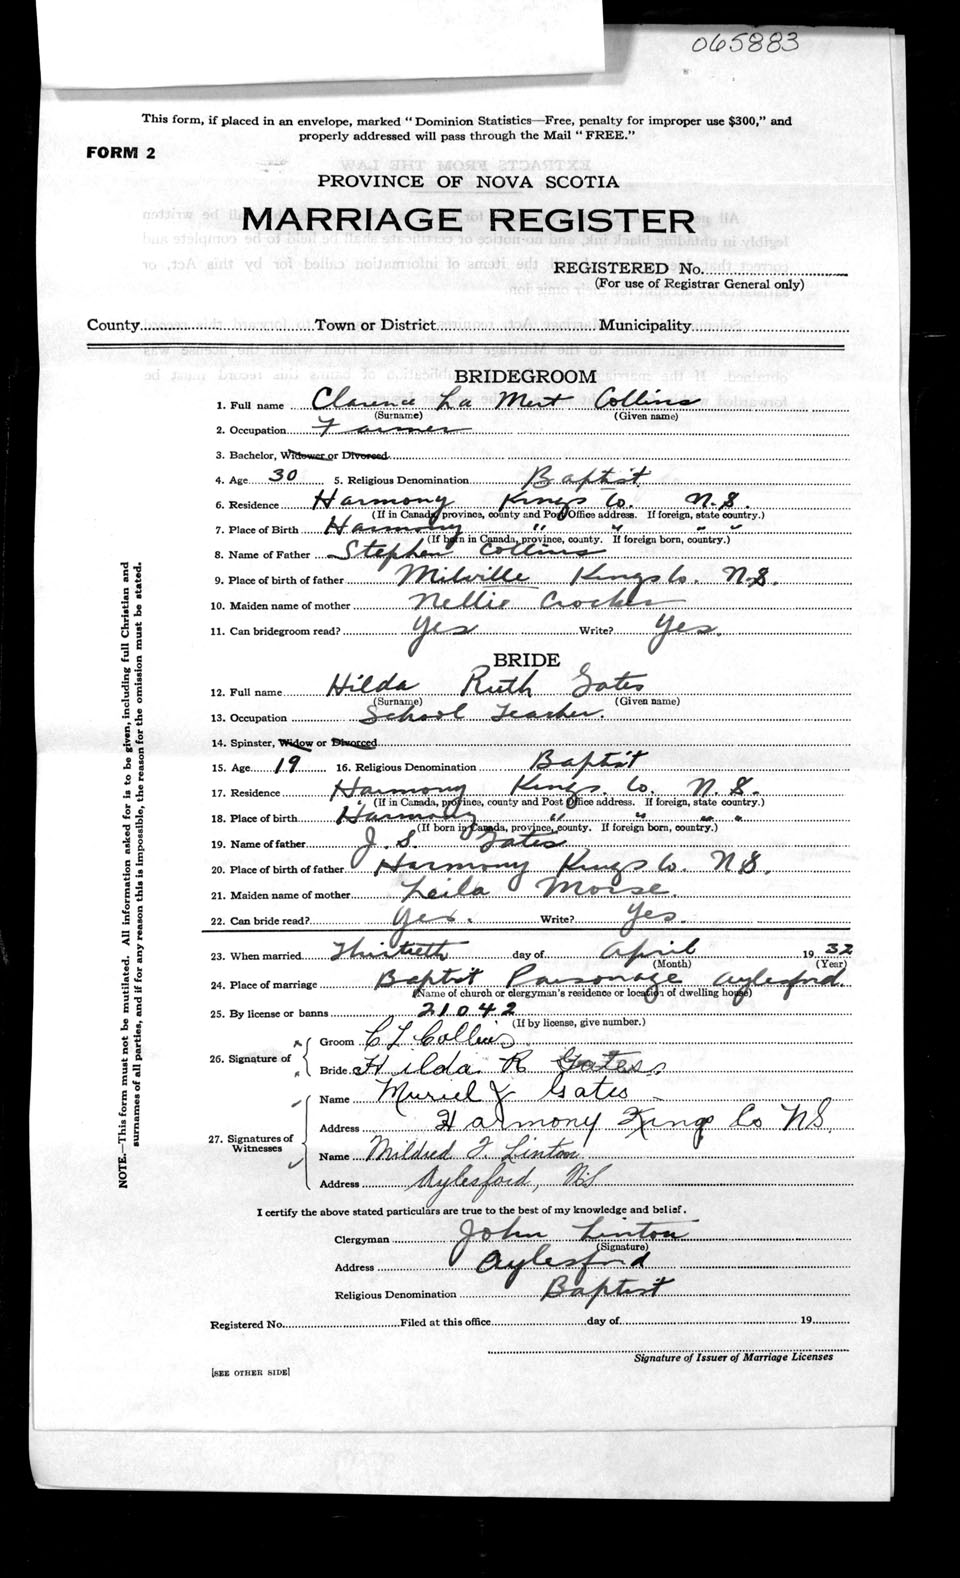 065883
This form, if placed in an envelope, marked "Dominion Statistics—Free, penalty for improper use $300," and
properly addressed will pass through the Mail "FREE."
FORM 2
PROVINCE OF NOVA SCOTIA
MARRIAGE REGISTER
REGISTERED No.
(For use of Registrar General only)
County Town or District Municipality
BRIDEGROOM
1. Full name Clarence La Mert Collins
(Surname) (Given name)
2. Occupation Farmer
3. Bachelor, Widower or Divorced
4. Age 30 5. Religious Denomination Baptist
6. Residence Harmony Kings Co. N.S.
(If in Canada, province, county and Post Office address. If foreign, state country.)
7. Place of Birth Harmony " " " "
(If born in Canada, province, county. If foreign born, country.)
8. Name of Father Stephen Collins
9. Place of birth of father Milville Kings Co. N.S.
10. Maiden name of mother Nellie Crocker
11. Can bridegroom read? Yes Write? Yes.
BRIDE
12. Full name Hilda Ruth Gates
(Surname) (Given name)
13. Occupation School Teacher.
14. Spinster, Widow or Divorced
15. Age 19 16. Religious Denomination Baptist
17. Residence Harmony Kings. Co. N.S.
(If in Canada, province, county and Post Office address. If foreign, state country.)
18. Place of birth Harmony " " " "
(If born in Canada, province, county. If foreign born, country.)
19. Name of father J. S. Gates
20. Place of birth of father Harmony Kings Co. N.S.
21. Maiden name of mother Leila Morse
22. Can bride read? Yes. Write? Yes.
23. When married Thirtieth day of April 1932
(Month) (Year)
24. Place of marriage Baptist Parsonage Aylesford.
(Name of church or clergyman's residence or location of dwelling house)
25. By license or banns 21042
(If by license, give number.)
26. Signature of
Groom C L Collins
Bride Hilda R Gates
27. Signatures of Witnesses
Name Muriel J Gates
Address Harmony Kings Co NS.
Name Mildred F. Linton
Address Aylesford, NS
I certify the above stated particulars are true to the best of my knowledge and belief.
Clergyman John Linton
(Signature)
Address Aylesford
Religious Denomination Baptist
Registered No. Filed at this office day of 19
Signature of Issuer of Marriage Licenses
[SEE OTHER SIDE]
NOTE.—This form must not be mutilated. All information asked for is to be given, including full Christian and
surnames of all parties, and if for any reason this is impossible, the reason for the omission must be stated.